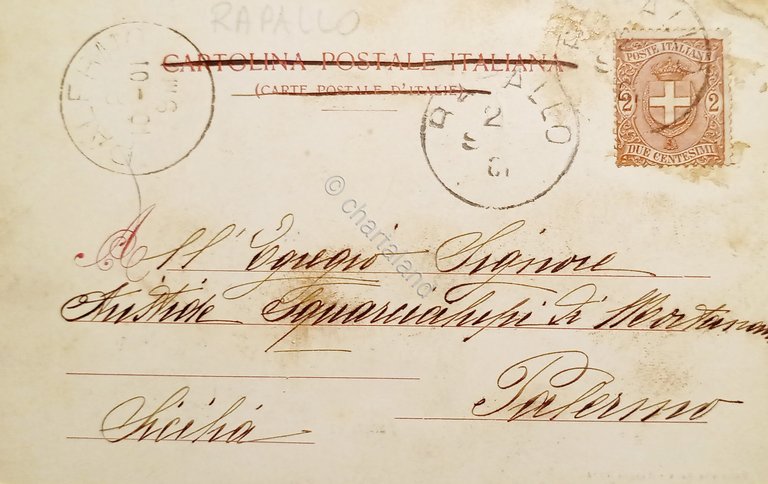 RAPALLO
CARTOLINA POSTALE ITALIANA
(CARTE POSTALE D'ITALIE)
PALERMO
10-
RAPALLO
2
POSTE ITALIANE
2 2
DUE CENTESIMI
© chartaland
All' Egregio Signore
Aristide Squarcialupi di
Palermo
Sicilia